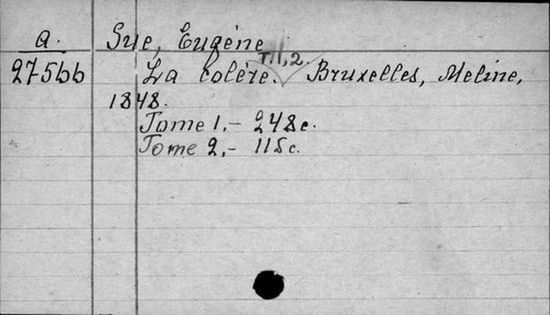 a. Sue, Eugène
T.1,2.
27566 La Colère. Bruxelles, Meline,
1848.
Tome 1.- 248c.
Tome 2.- 115c.